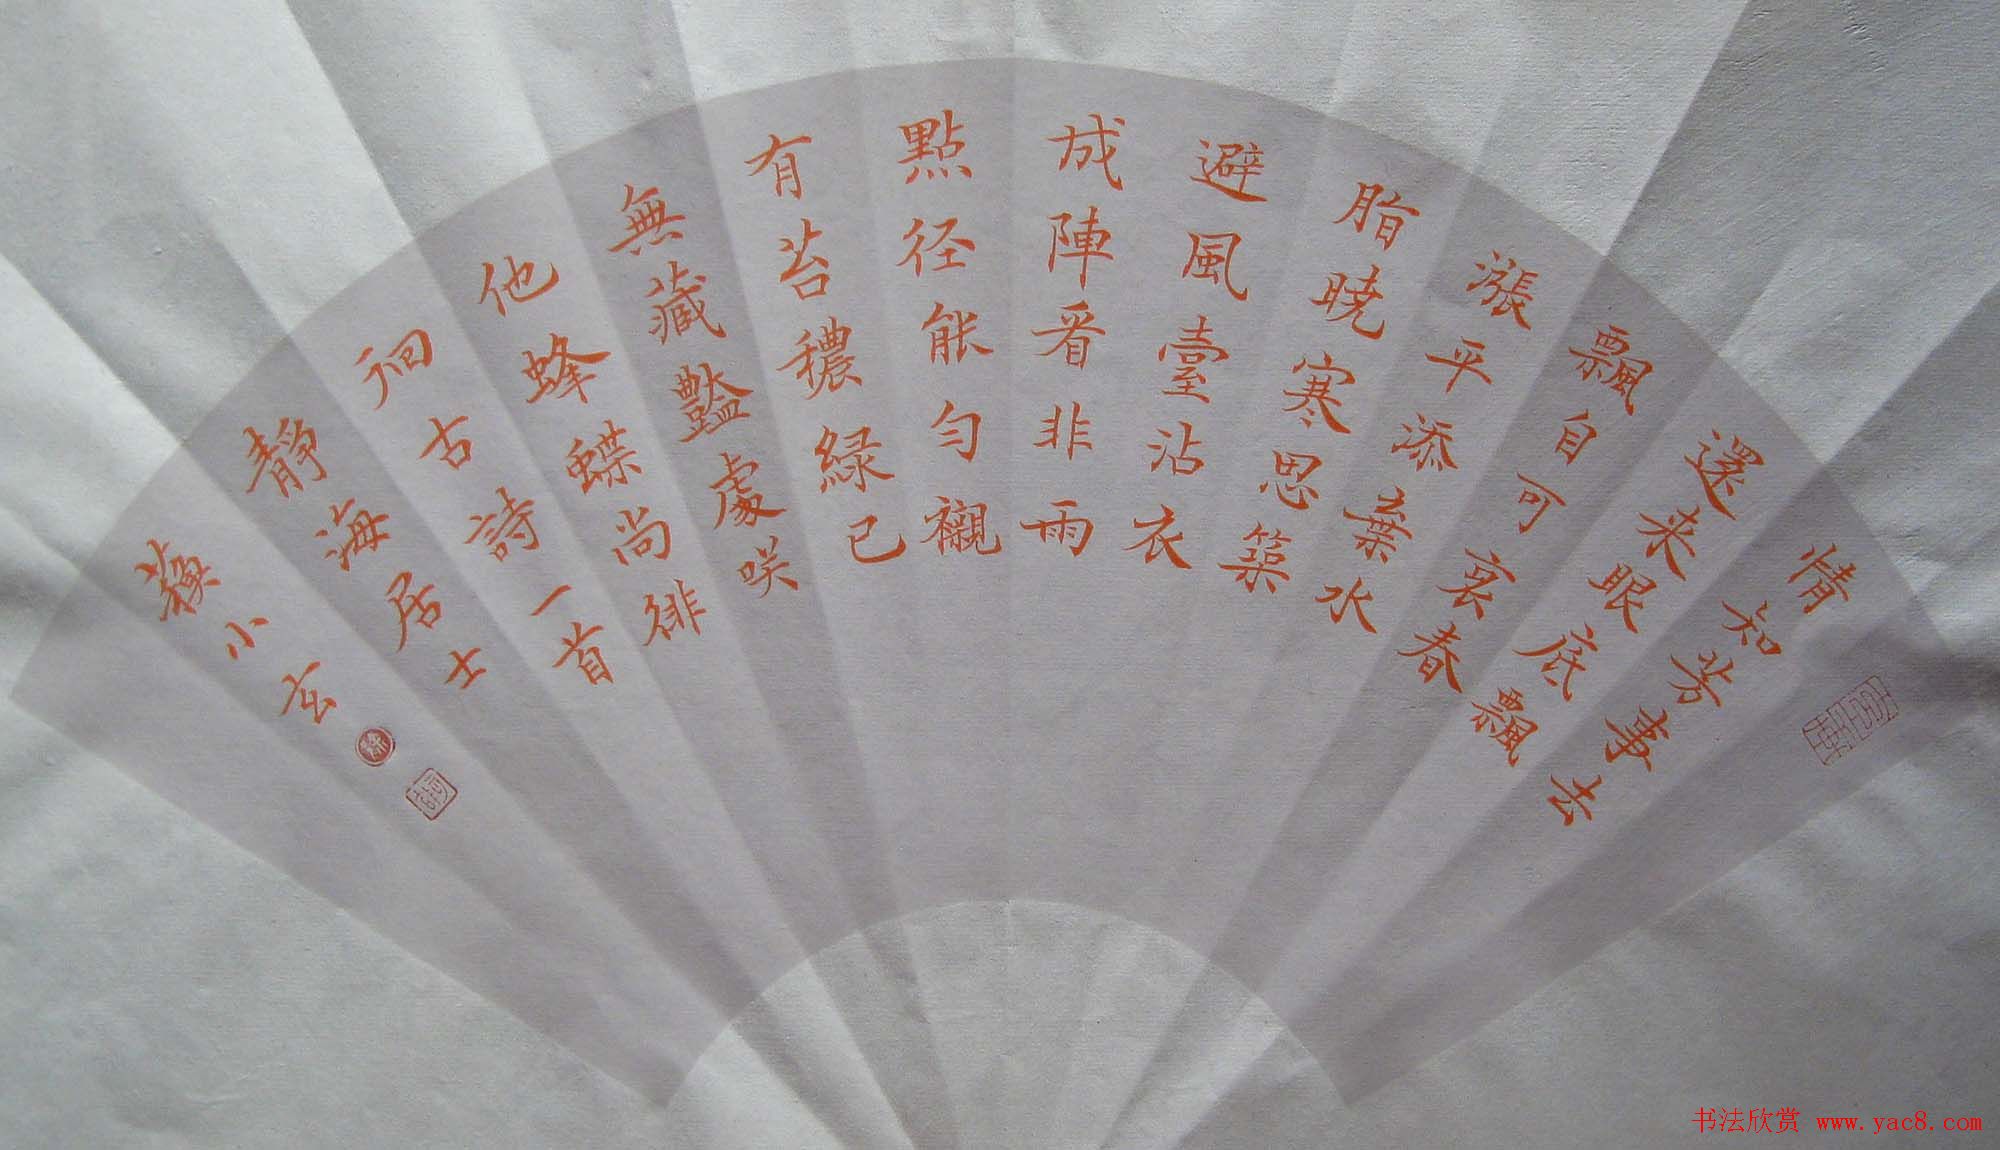 情知芳事去
還来眼底飄
飄自可哀春
漲平添棄水
脂曉寒思築
避風臺沾衣
成陣看非雨
點径能勻襯
有苔穠綠已
無藏豔處咲
他蜂蝶尚徘
徊古詩一首
靜海居士
蘓小玄
书法欣赏 www.yac8.com